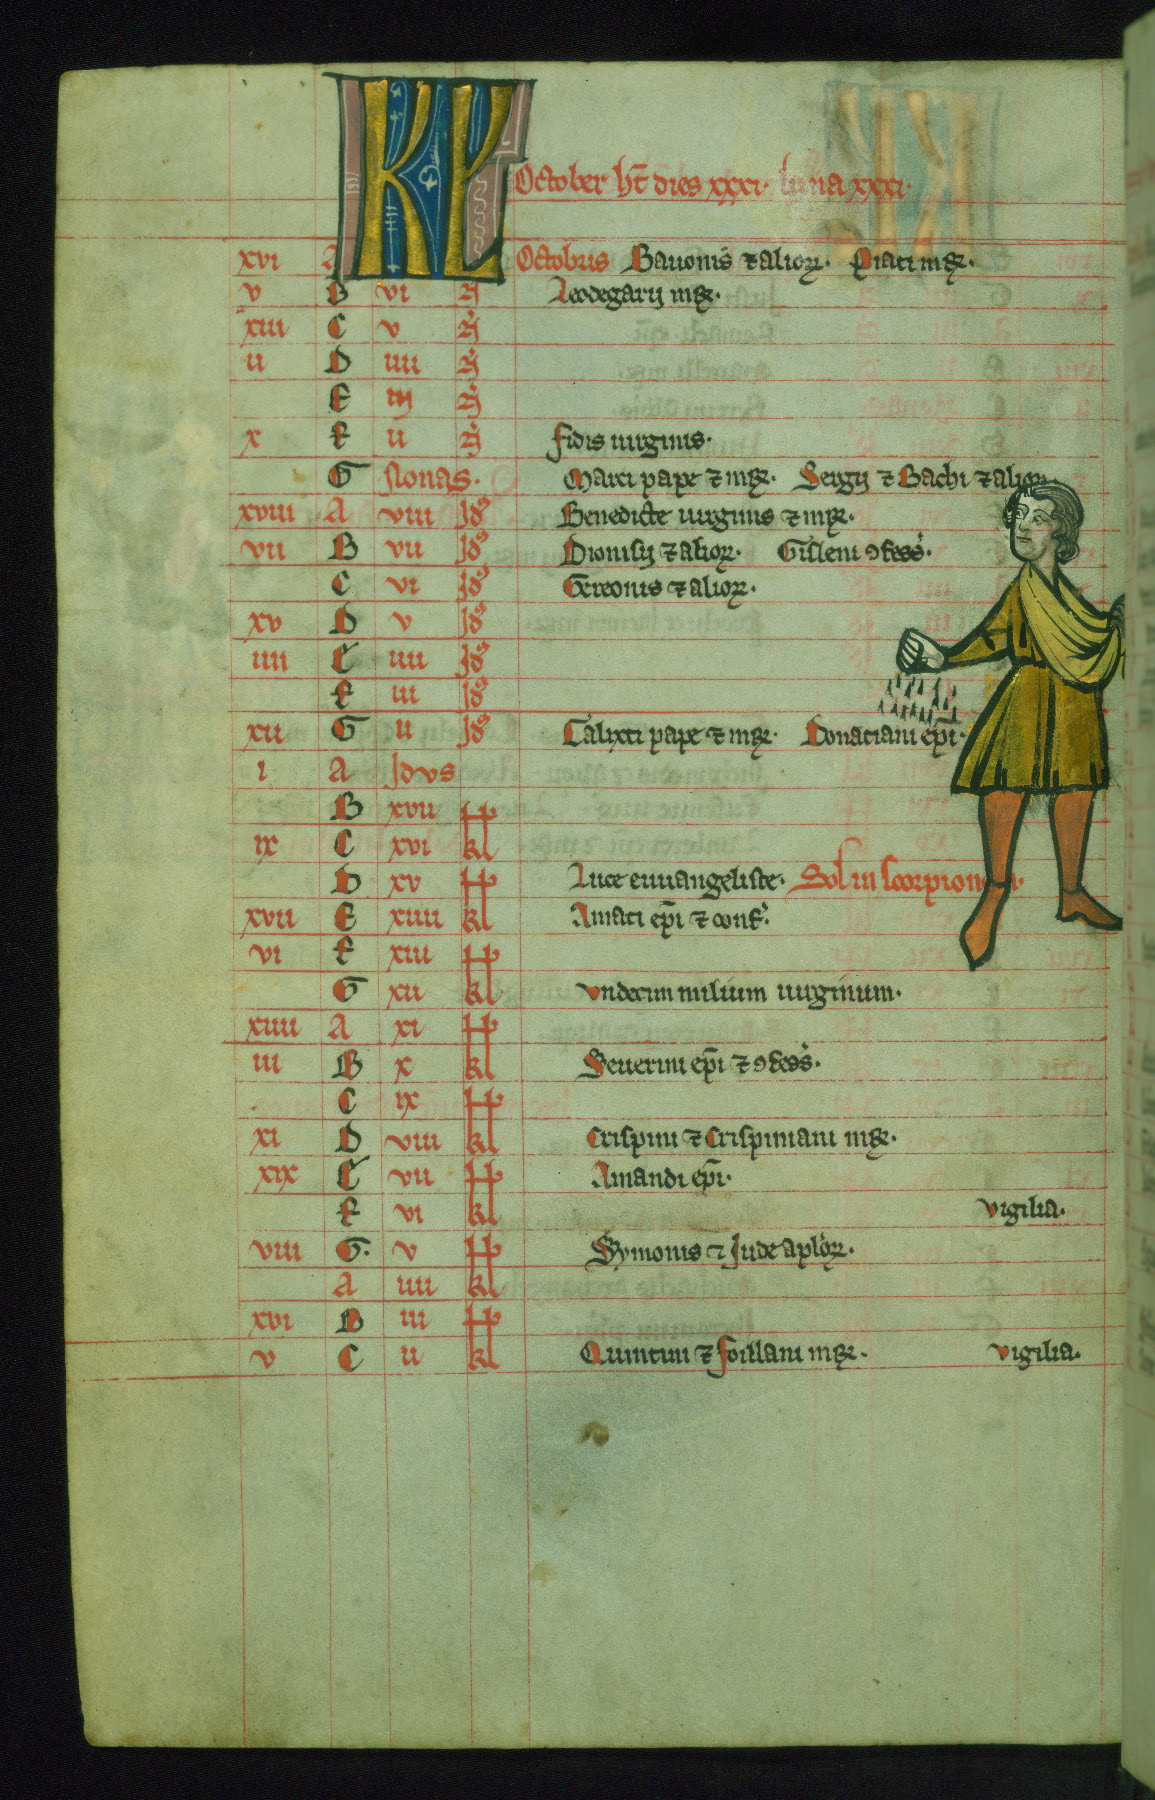 KL October ht dies xxxi. luna xxxi.
xvi A Octobris Bauonis ⁊ alior. Piati mr.
v B vi N Leodegarij mr.
xiii C v N
ii D iiii N
E iii N
x F ii N Fidis uirginis.
G Nonas. Marci pape ⁊ mr. Sergij ⁊ Bachi ⁊ alior.
xviii A viii Id Benedicte uirginis ⁊ mr.
vii B vii Id Dionisij ⁊ alior. Gisleni ꝯfess.
C vi Id Gereonis ⁊ alior.
xv D v Id
iiii E iiii Id
F iii Id
xii G ii Id Calixti pape ⁊ mr. Donatiani epi.
i A Idvs
B xvii kl
ix C xvi kl
D xv kl Luce euuangeliste. Sol in scorpion
xvii E xiiii kl Amati epi ⁊ conf.
vi F xiii kl
G xii kl Vndecim milium uirginum.
xiiii A xi kl
iii B x kl Seuerini epi ⁊ ꝯfess.
C ix kl
xi D viii kl Crispini ⁊ Crispiniani mr.
xix E vii kl Amandi epi.
F vi kl vigilia.
viii G. v kl Symonis ⁊ Iude aplor.
A iiii kl
xvi B iii kl
v C ii kl Quintini ⁊ foillani mr. vigilia.